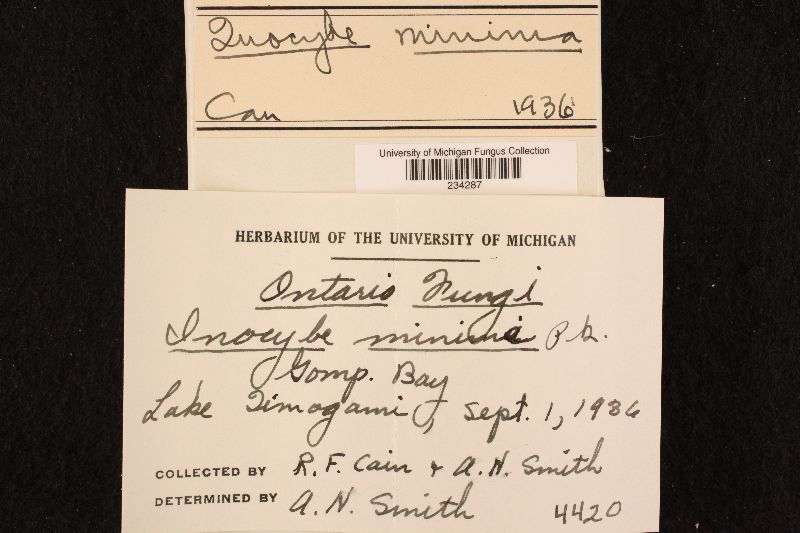 Inocybe minima
Can 1936
University of Michigan Fungus Collection
234287
HERBARIUM OF THE UNIVERSITY OF MICHIGAN
Ontario Fungi
Inocybe minima Pk.
Gomp. Bay
Lake Timogami, Sept. 1, 1936
COLLECTED BY R.F. Cain & A.H. Smith
DETERMINED BY A.H. Smith 4420